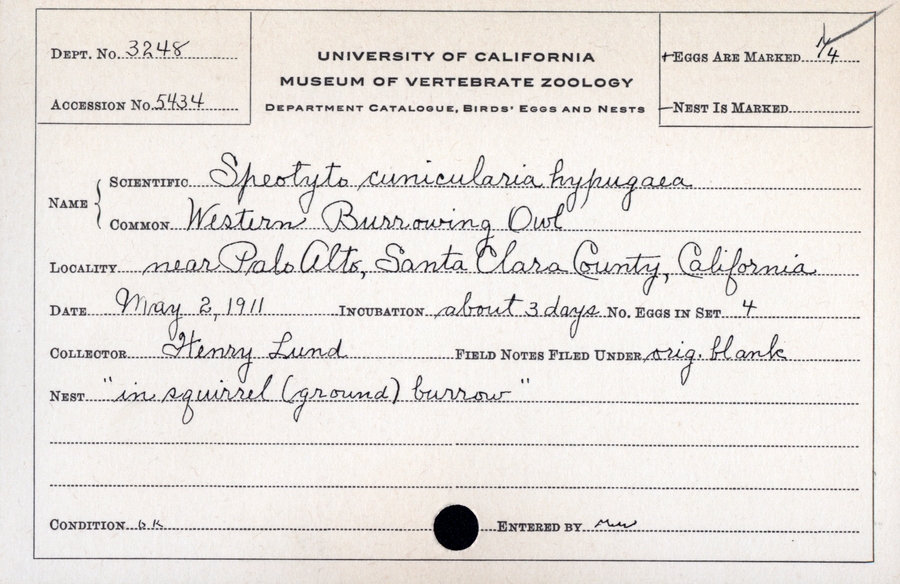 DEPT. No. 3248
ACCESSION No. 5434
UNIVERSITY OF CALIFORNIA
MUSEUM OF VERTEBRATE ZOOLOGY
DEPARTMENT CATALOGUE, BIRDS' EGGS AND NESTS
EGGS ARE MARKED n/4
NEST IS MARKED
NAME
SCIENTIFIC Speotyto cunicularia hypugaea
COMMON Western Burrowing Owl
LOCALITY near Palo Alto, Santa Clara County, California
DATE May 2, 1911 INCUBATION about 3 days No. EGGS IN SET 4
COLLECTOR Henry Lund FIELD NOTES FILED UNDER orig. blank
NEST "in squirrel (ground) burrow"
CONDITION ok ENTERED BY